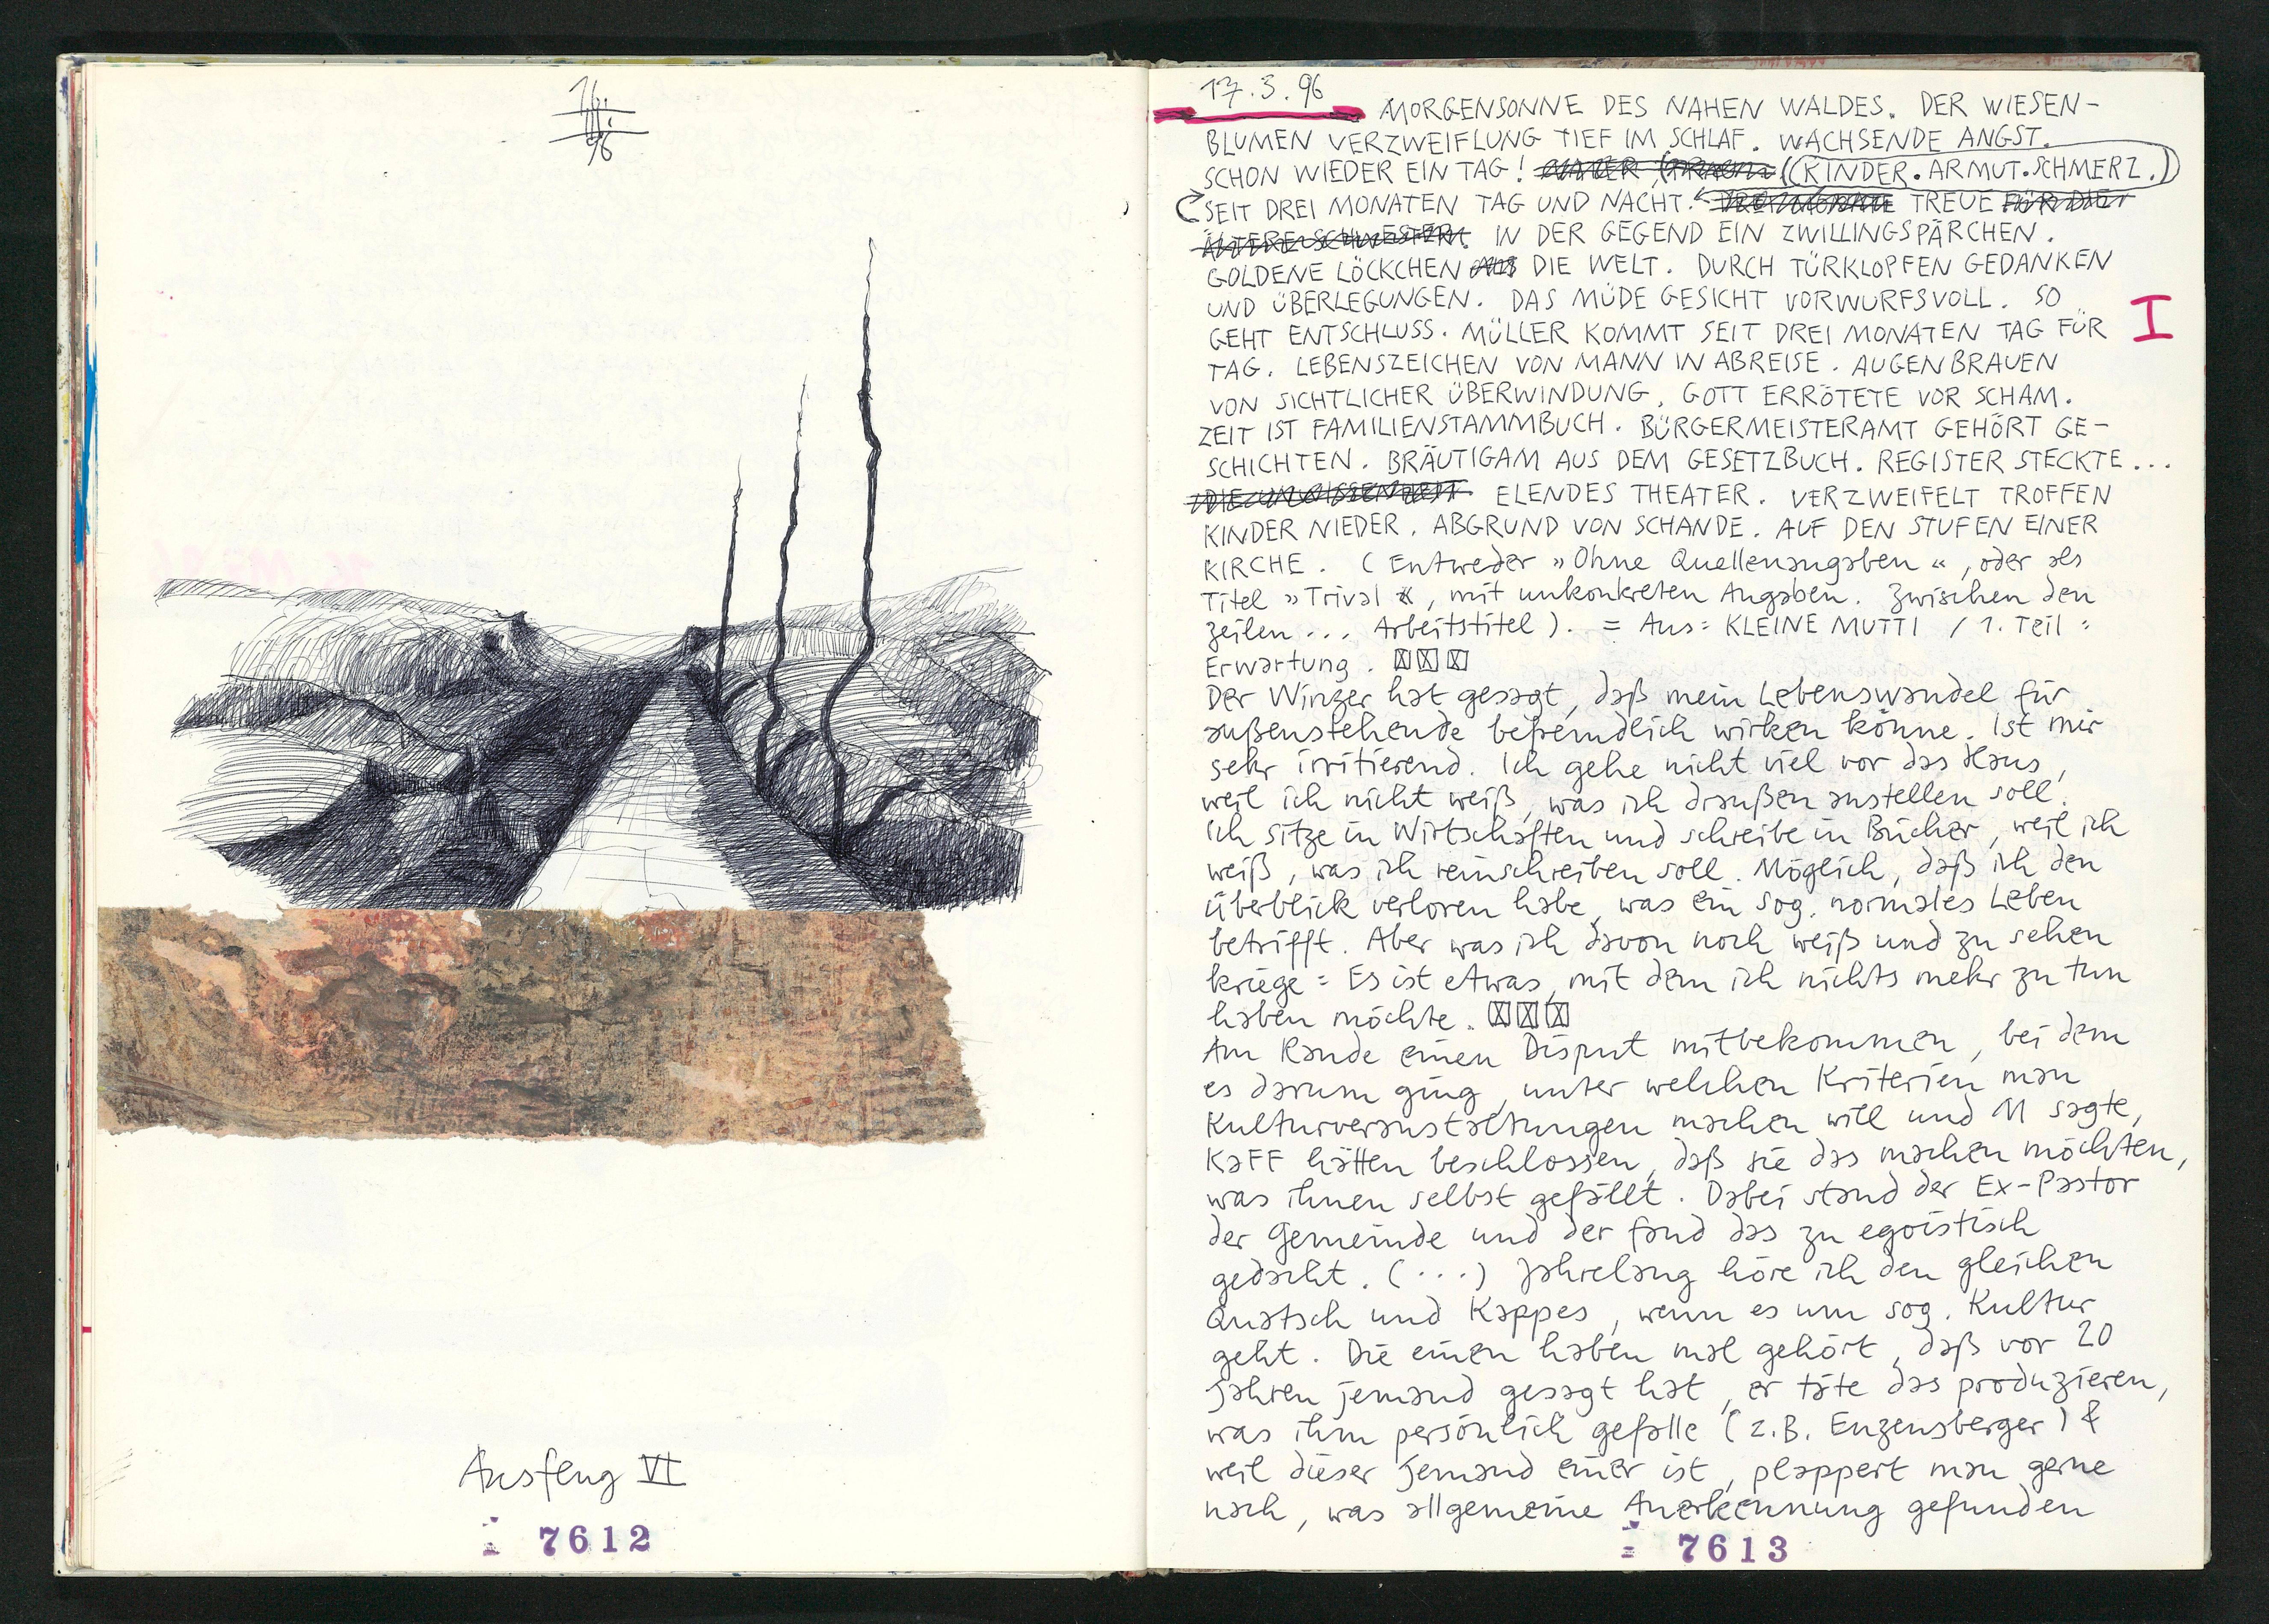 16.
III.
96
Ausflug VI
7612
17.3.96
MORGENSONNE DES NAHEN WALDES. DER WIESEN-
BLUMEN VERZWEIFLUNG TIEF IM SCHLAF. WACHSENDE ANGST.
SCHON WIEDER EIN TAG! (KINDER. ARMUT. SCHMERZ.)
SEIT DREI MONATEN TAG UND NACHT. TREUE FÜR DIE
ÄLTERE SCHWESTER. IN DER GEGEND EIN ZWILLINGSPÄRCHEN.
GOLDENE LÖCKCHEN AUS DIE WELT. DURCH TÜRKLOPFEN GEDANKEN
UND ÜBERLEGUNGEN. DAS MÜDE GESICHT VORWURFSVOLL. SO
GEHT ENTSCHLUSS. MÜLLER KOMMT SEIT DREI MONATEN TAG FÜR
I
TAG. LEBENSZEICHEN VON MANN IN ABREISE. AUGENBRAUEN
VON SICHTLICHER ÜBERWINDUNG. GOTT ERRÖTETE VOR SCHAM.
ZEIT IST FAMILIENSTAMMBUCH. BÜRGERMEISTERAMT GEHÖRT GE-
SCHICHTEN. BRÄUTIGAM AUS DEM GESETZBUCH. REGISTER STECKTE...
DIE UNWISSENHEIT. ELENDES THEATER. VERZWEIFELT TROFFEN
KINDER NIEDER. ABGRUND VON SCHANDE. AUF DEN STUFEN EINER
KIRCHE. (Entweder »Ohne Quellenangaben«, oder als
Titel »Trival«, mit unkonkreten Angaben. Zwischen den
Zeilen... Arbeitstitel). = Aus: KLEINE MUTTI / 1. Teil:
Erwartung. ☒☒☒
Der Winzer hat gesagt, daß mein Lebenswandel für
außenstehende befremdlich wirken könne. Ist mir
sehr irritierend. Ich gehe nicht viel vor das Haus,
weil ich nicht weiß, was ich draußen anstellen soll.
Ich sitze in Wirtschaften und schreibe in Bücher, weil ich
weiß, was ich reinschreiben soll. Möglich, daß ich den
Überblick verloren habe, was ein sog. normales Leben
betrifft. Aber was ich davon noch weiß und zu sehen
kriege: Es ist etwas, mit dem ich nichts mehr zu tun
haben möchte. ☒☒☒
Am Rande einen Disput mitbekommen, bei dem
es darum ging, unter welchen Kriterien man
Kulturveranstaltungen machen will und M sagte,
KaFF hätten beschlossen, daß sie das machen möchten,
was ihnen selbst gefällt. Dabei stand der Ex-Pastor
der Gemeinde und der fand das zu egoistisch
gedacht. (...) Jahrelang höre ich den gleichen
Quatsch und Kappes, wenn es um sog. Kultur
geht. Die einen haben mal gehört, daß vor 20
Jahren jemand gesagt hat, er täte das produzieren,
was ihm persönlich gefalle (z.B. Enzensberger) &
weil dieser Jemand einer ist, plappert man gerne
nach, was allgemeine Anerkennung gefunden
7613